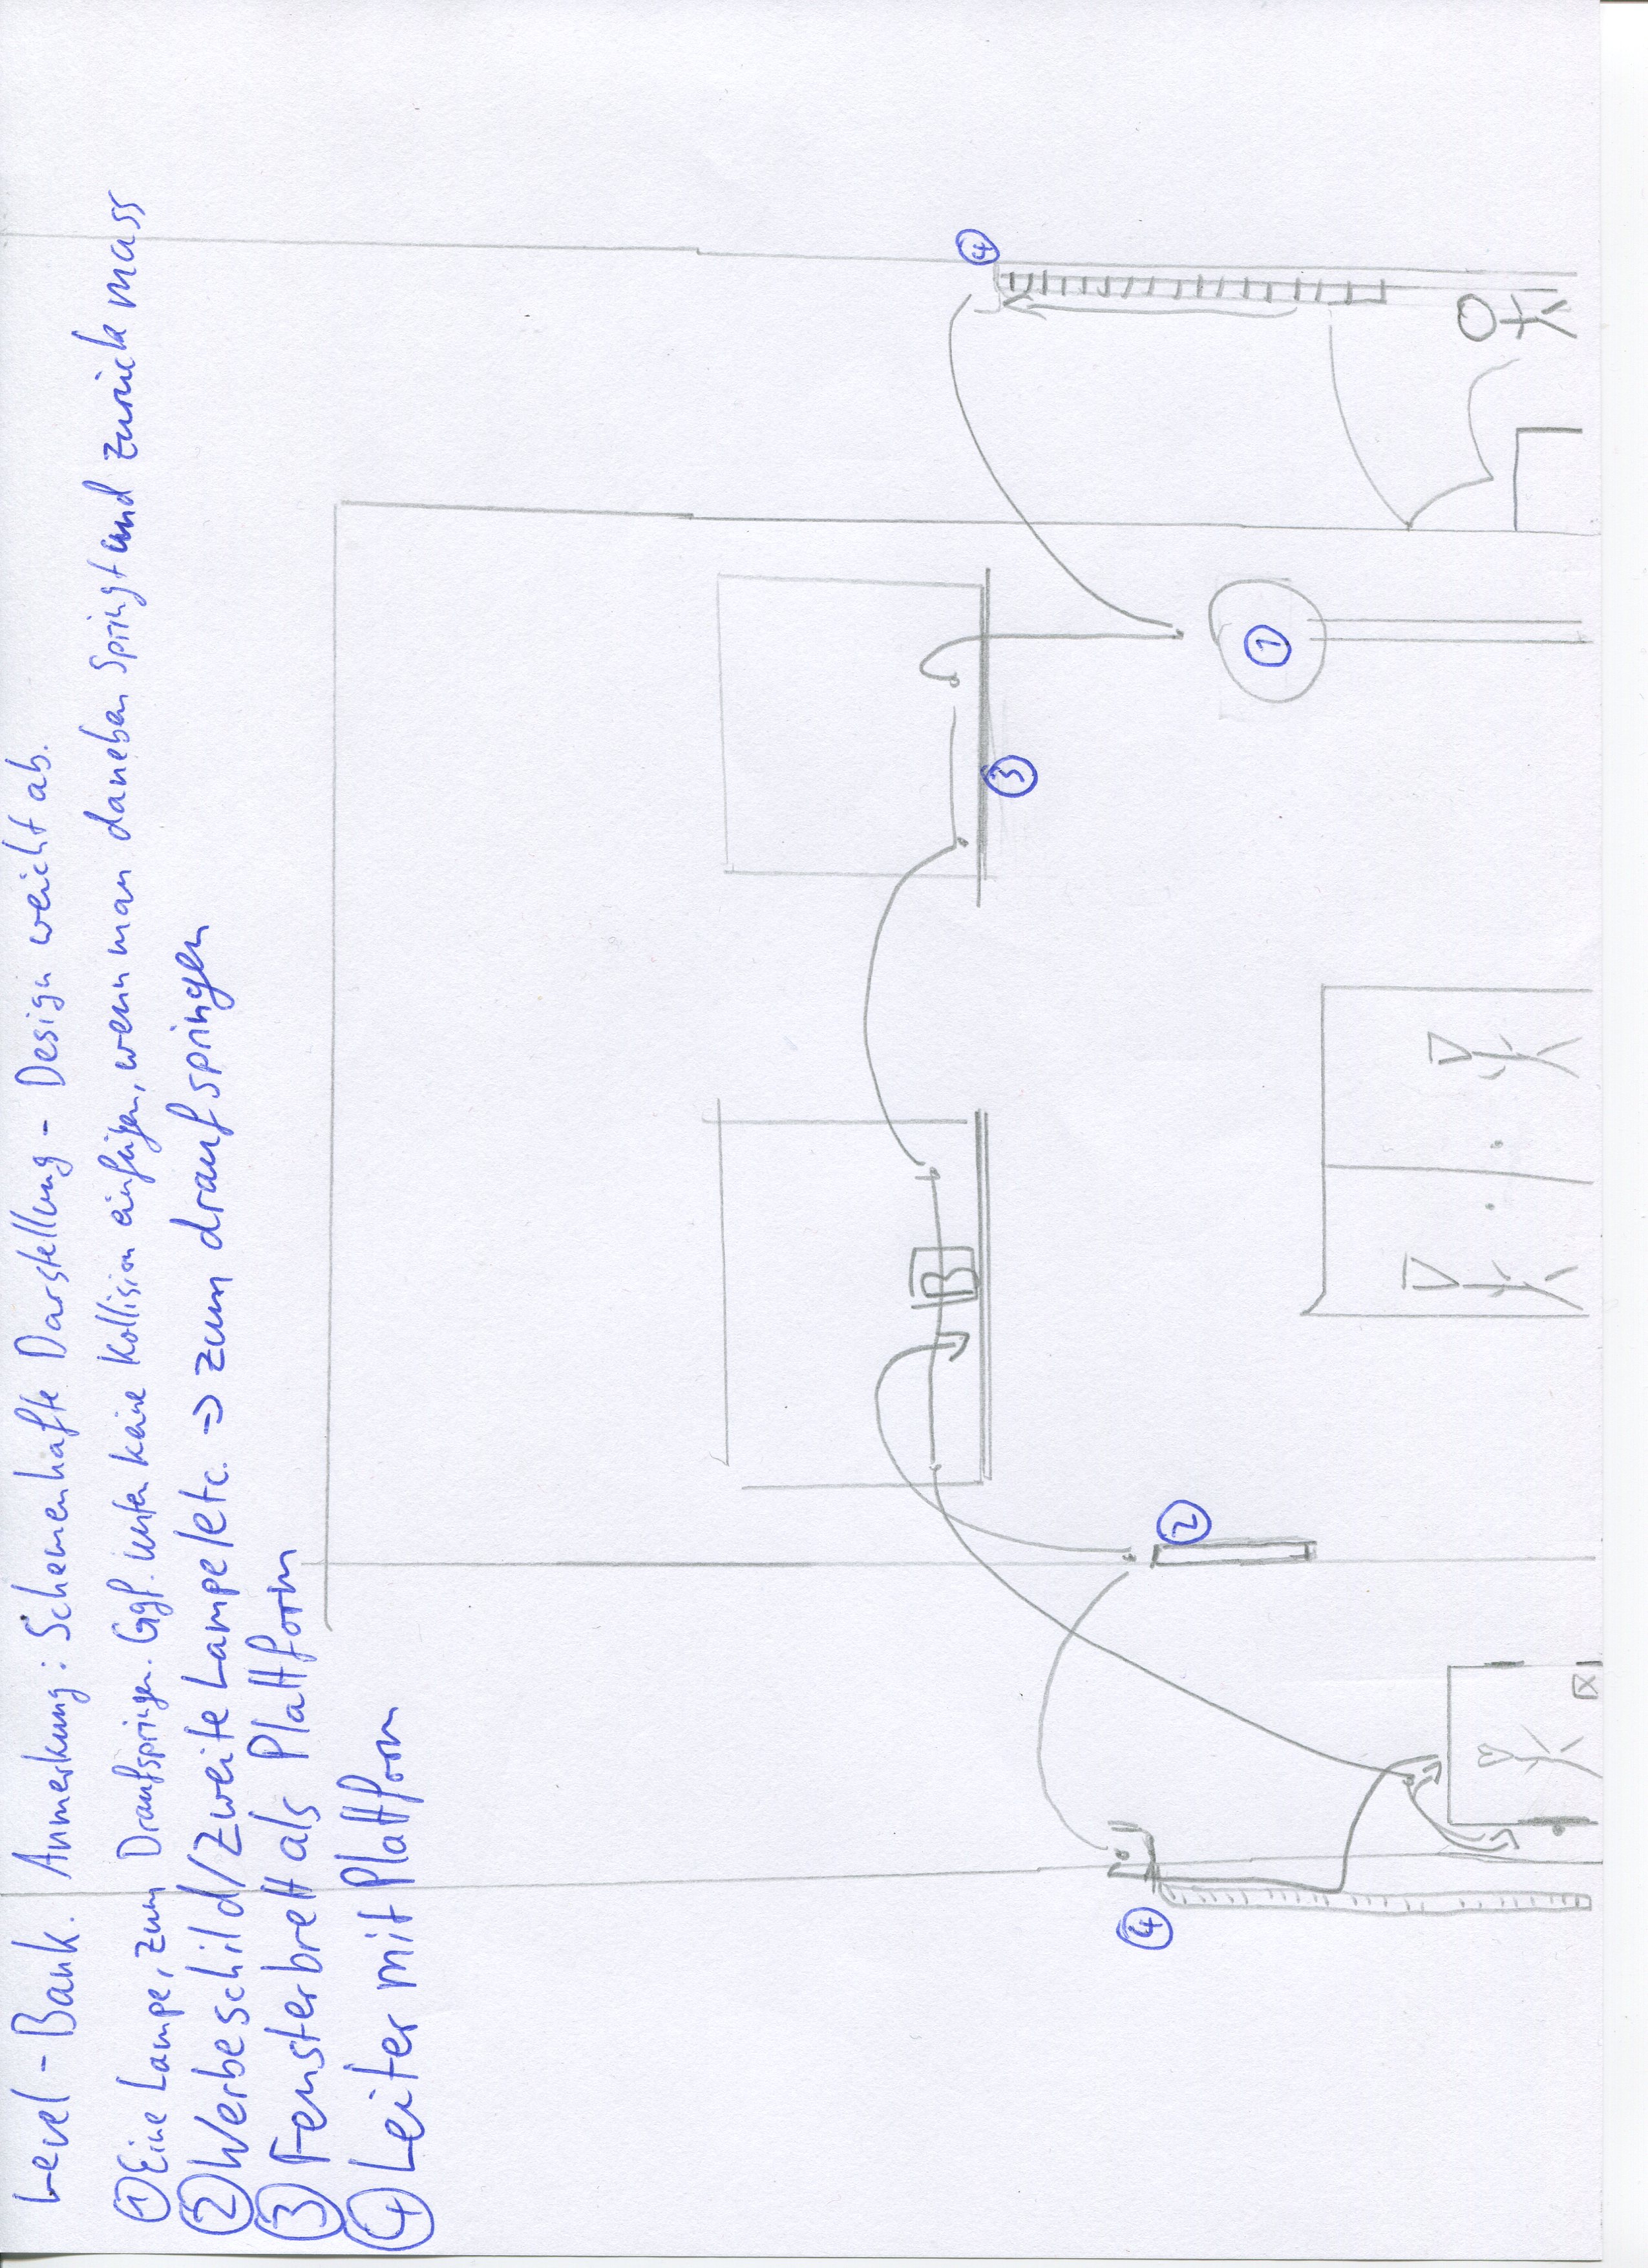 Level-Bank. Anmerkung: Schemenhafte Darstellung - Design weicht ab.
① Eine Lampe, zum Draufspringen. Ggf. unten keine Kollision einfügen, wenn man daneben springt und zurück muss
② Werbeschild/Zweite Lampe/etc. => zum draufspringen
③ Fensterbrett als Plattform
④ Leiter mit Plattform
④
③
①
②
④
B